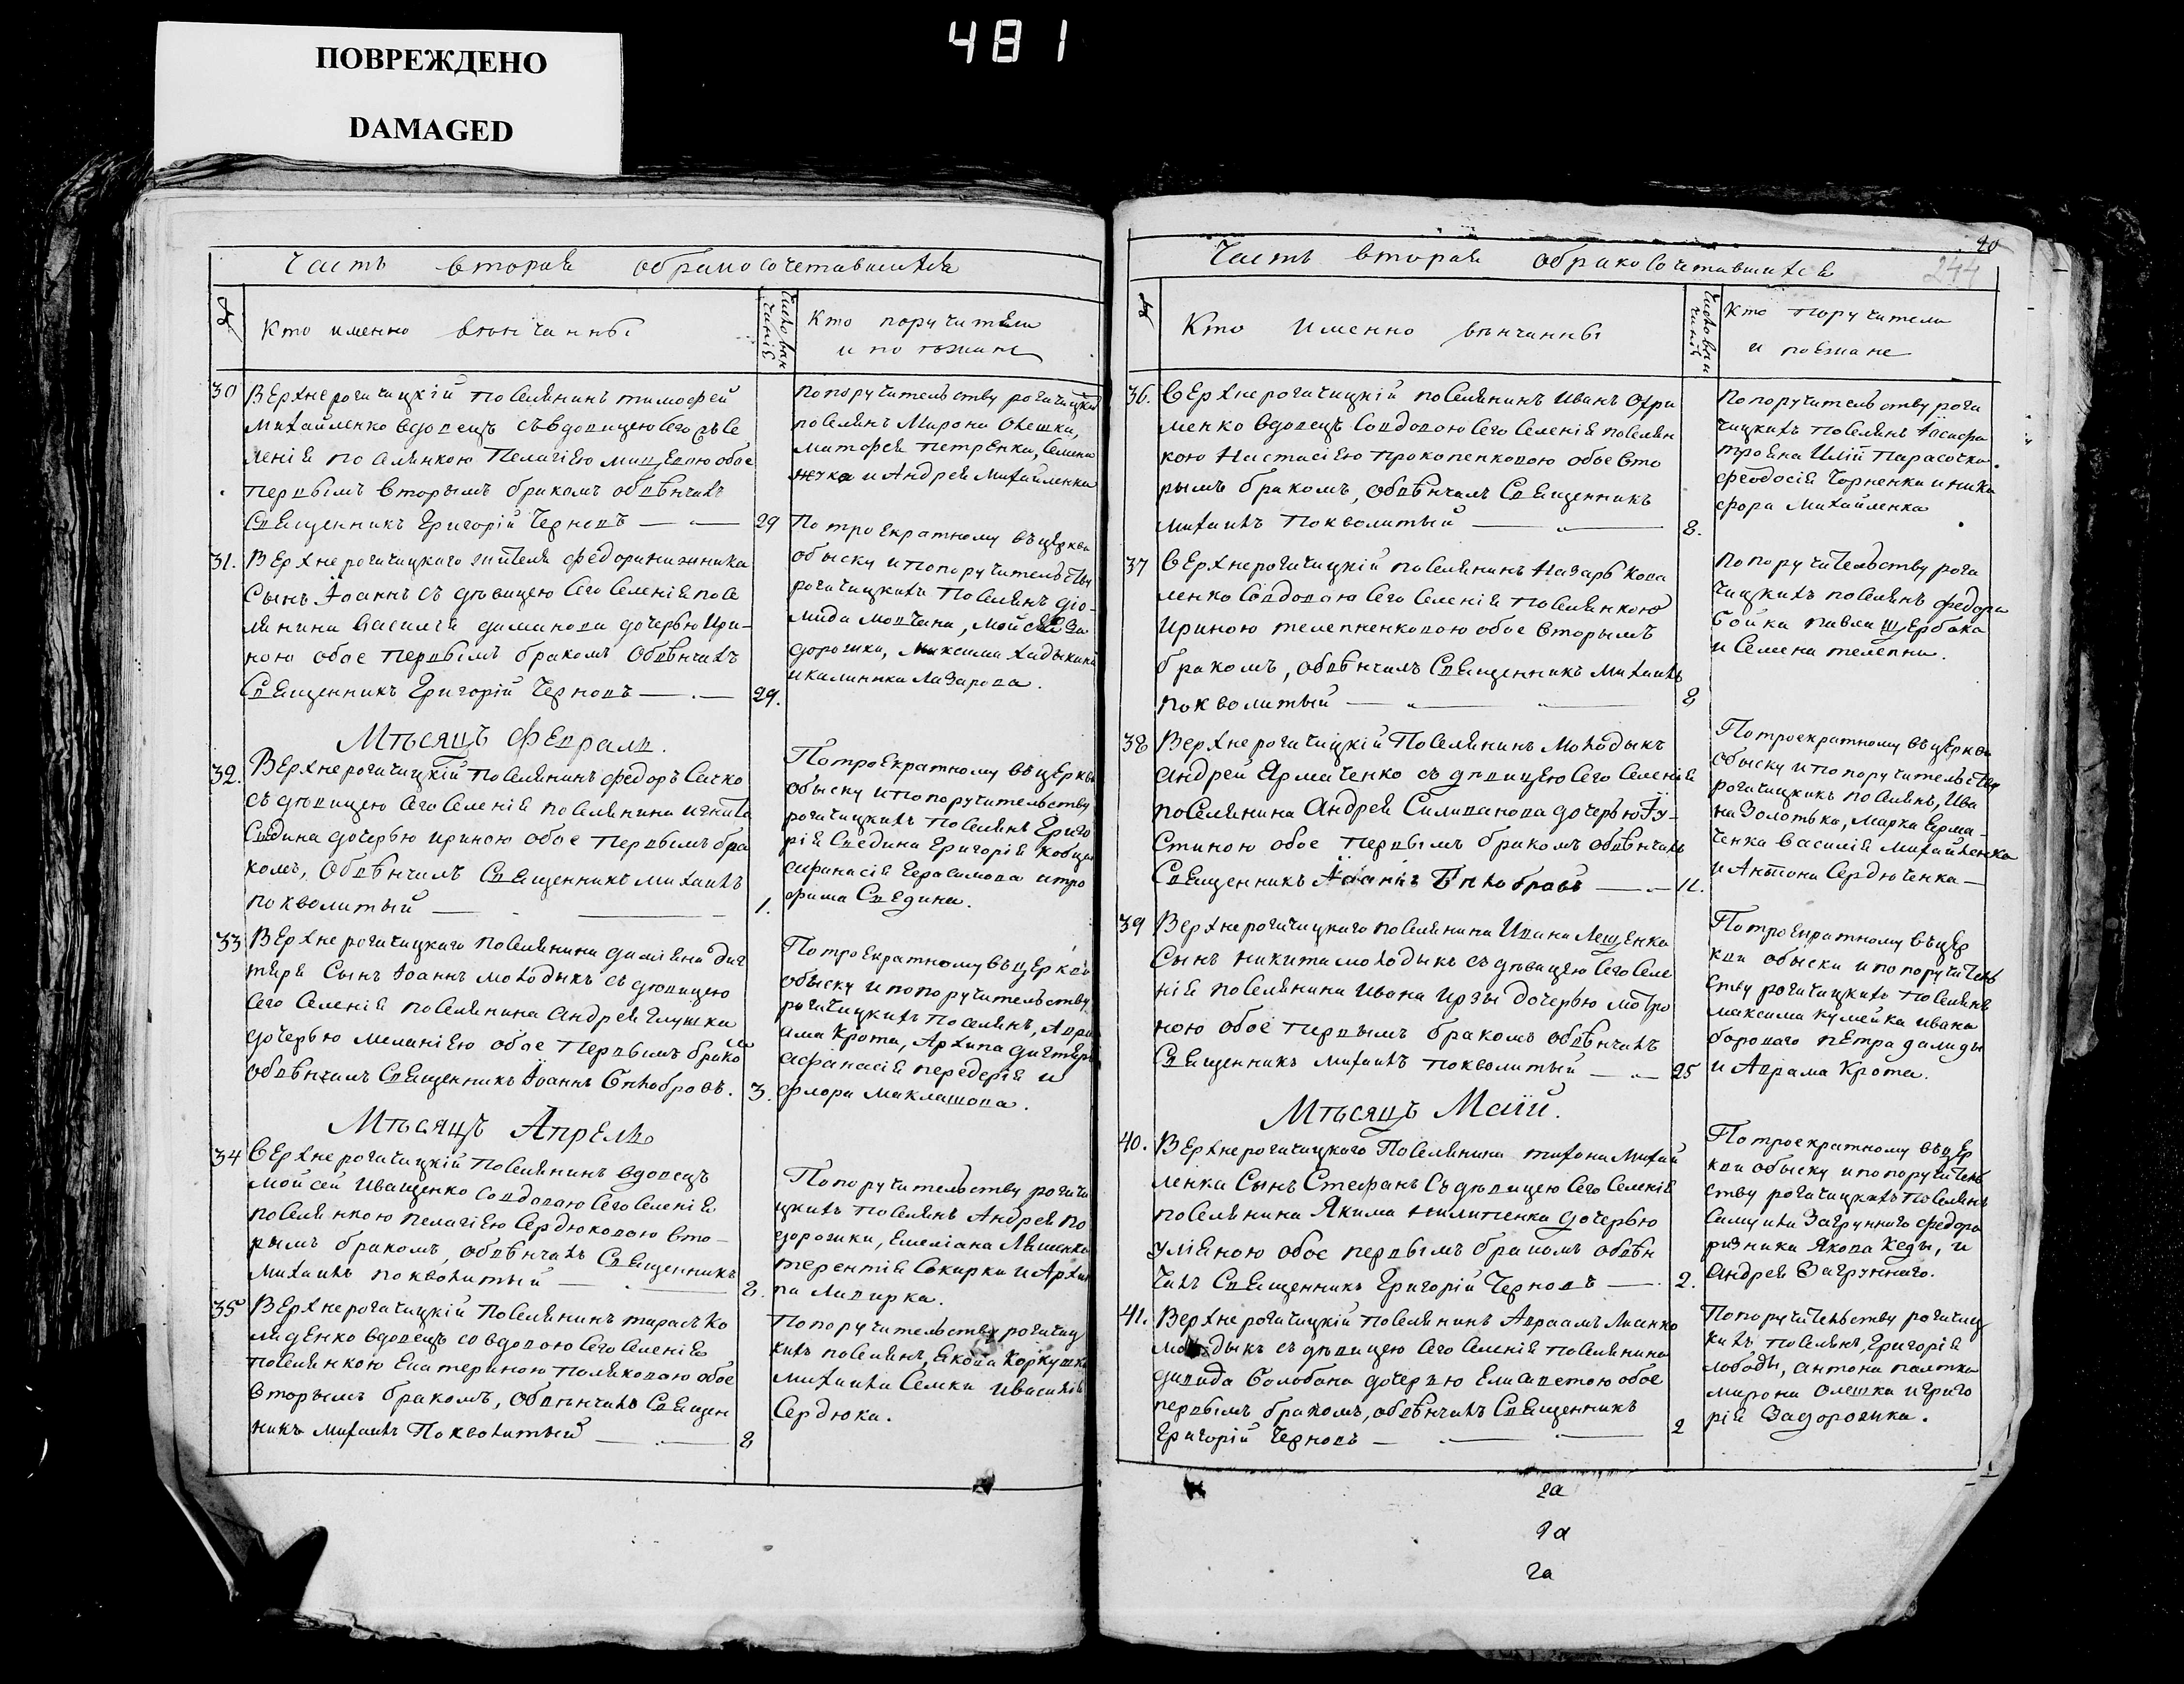 481
ПОВРЕЖДЕНО
DAMAGED
Часть вторая о бракосочетавшихся
Кто именно вѣнчанны
Число вѣнчанія
Кто поручители
и поѣзжане
30
Верхнерогачицкій поселянинъ тимофей
Михайленко вдовецъ съ вдовицею сего съ се
ленія поселянкою Пелагіею обое
первымъ вторымъ бракомъ обвѣнчалъ
Священникъ Григорій Черновъ
29
По поручительству рогачицких
поселянъ Мирона Олешка,
Матофея Петренка, Семена
и Андрея Михайленка
31.
Верхнерогачицкаго жителя федора
Сынъ Іоаннъ съ дѣвицею сего селенія посе
лянина Василія дочерью Ири-
ною обое первымъ бракомъ обвѣнчалъ
Священникъ Григорій Черновъ
29.
По троекратному въ церкви
обыску и по поручительству
рогачицкихъ поселянъ Діо-
мида Мовчана, Мойсея За
дорожки, Максима
и калиника Лазарева.
Мѣсяцъ Февраль.
32.
Верхнерогачицкій поселянинъ федоръ Сачко
съ дѣвицею сего селенія поселянина игната
Сведина дочерью ириною обое первымъ бра
комъ, обвѣнчалъ Священникъ михаилъ
покволитый
1.
По троекратному въ церкви
обыску и по поручительству
рогачицкихъ поселянъ Григо
рія Сведина Григорія
афанасія Герасимова и тро
фима Сведина.
33
Верхнерогачицкаго поселянина даміана дих
тяря Сынъ Іоаннъ молодыкъ съ дѣвицею
сего селенія поселянина андрея глушка
дочерью меланіею обое первымъ бракомъ
обвѣнчалъ Священникъ Іоаннъ Бѣлобровъ.
3.
По троекратному въ церкви
обыску и по поручительству
рогачицкихъ поселянъ, Авра
ама Крота, Архипа дихтяря
афанасія передерія и
флора маклашова.
Мѣсяцъ Апрель
34
Верхнерогачицкій поселянинъ вдовецъ
мойсей Иващенко со вдовою сего селенія
поселянкою пелагіею Сердюковою вто-
рымъ бракомъ, обвѣнчалъ Священникъ
михаилъ покволитый
8.
По поручительству рогачи
цкихъ поселянъ Андрея по
дорожки, Емеліана Ляшенка
терентія Сокирки и Архи
па Лидирка.
35
Верхнерогачицкій поселянинъ тарасъ Ко
лиденко вдовецъ со вдовою сего селенія
поселянкою Екатериною Поляковою обое
вторымъ бракомъ, обвѣнчалъ Священ
никъ михаилъ Покволитый
8
По поручительству рогачиц
кихъ поселянъ, Якова Коркушка
михаила Семки и василія
Сердюка.
40
244
Часть вторая о бракосочетавшихся
Кто именно вѣнчанны
Число вѣнчанія
Кто поручители
и поезжане
36.
Верхнерогачицкій поселянинъ Иванъ Охри
менко вдовецъ со вдовою сего селенія поселян
кою Настасіею прокопенковою обое вто
рымъ бракомъ, обвѣнчалъ Священникъ
михаилъ Покволитый
8.
По поручительству рога
чицкихъ поселянъ
трояна Иліи Парасочка.
феодосія Чорненка и ники
фора Михайленка
37
Верхнерогачицкій поселянинъ Назаръ Кова
ленко со вдовою сего селенія поселянкою
Ириною телепненковою обое вторымъ
бракомъ, обвѣнчалъ Священникъ михаилъ
покволитый
8
По поручительству рога
чицкихъ поселянъ федора
бойка павла щербака
и Семена телепни.
38
Верхнерогачицкій поселянинъ молодыкъ
андрей Ярмаченко съ дѣвицею сего селенія
поселянина андрея Силиванова дочерью Іу-
стиною обое первымъ бракомъ обвѣнчалъ
Священникъ Іоаннъ Бѣлобровъ
11.
По троекратному въ церкви
обыску и по поручительству
рогачицкихъ поселянъ, Ива
на Золотька, Марка Ерма-
ченка василія Михайленка
и Антона Сердюченка
39
Верхнерогачицкаго поселянина Ивана Лещенка
Сынъ никита молодыкъ съ дѣвицею сего селе
нія поселянина ивана ирзы дочерью мотро
ною обое первымъ бракомъ обвѣнчалъ
Священникъ михаилъ покволитый
25
По троекратному въ цер
кви обыски и по поручитель
ству рогачицкихъ поселянъ
максима кулейка ивана
бороваго петра далиды
и Аврама Крота.
Мѣсяцъ Маій.
40.
Верхнерогачицкаго Поселянина тихона михай
ленка Сынъ Стефанъ съ дѣвицею сего селенія
поселянина Якима пилипенка дочерью
уліяною обое первымъ бракомъ обвѣн
чалъ Священникъ Григорій Черновъ
2.
По троекратному въ цер
кви обыску и по поручитель
ству рогачицкихъ поселянъ
Самуила Загрунного федора
ризника Якова Кеды, и
Андрея Загрунного.
41.
Верхнерогачицкій поселянинъ Авраамъ Лисенко
молодыкъ съ дѣвицею сего селенія поселянина
давида балобана дочерью Елисаветою обое
первымъ бракомъ, обвѣнчалъ Священникъ
Григорій Черновъ
2
По поручительству рогачиц
кихъ поселянъ, Григорія
лободы, антона
мирона Олешка и григо
рія Задорожка.
2а
2а
2а